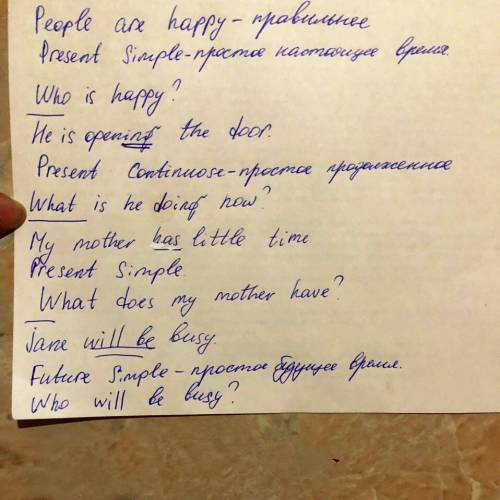 People are happy - правильнее
Present Simple - простое настоящее время.
Who is happy?
He is opening the door.
Present Continuose - простое продолженное
What is he doing now?
My mother has little time.
Present Simple.
What does my mother have?
Jane will be busy.
Future Simple - простое будущее время.
Who will be busy?